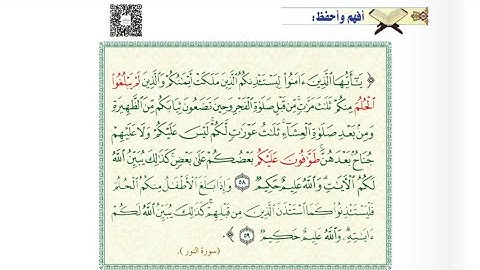 أفهم وأحفظ:
﴿ يَٰٓأَيُّهَا ٱلَّذِينَ ءَامَنُوا۟ لِيَسْتَـْٔذِنكُمُ ٱلَّذِينَ مَلَكَتْ أَيْمَٰنُكُمْ وَٱلَّذِينَ لَمْ يَبْلُغُوا۟
ٱلْحُلُمَ مِنكُمْ ثَلَٰثَ مَرَّٰتٍ مِّن قَبْلِ صَلَوٰةِ ٱلْفَجْرِ وَحِينَ تَضَعُونَ ثِيَابَكُم مِّنَ ٱلظَّهِيرَةِ
وَمِنۢ بَعْدِ صَلَوٰةِ ٱلْعِشَآءِ ثَلَٰثُ عَوْرَٰتٍ لَّكُمْ لَيْسَ عَلَيْكُمْ وَلَا عَلَيْهِمْ
جُنَاحٌۢ بَعْدَهُنَّ طَوَّٰفُونَ عَلَيْكُم بَعْضُكُمْ عَلَىٰ بَعْضٍ كَذَٰلِكَ يُبَيِّنُ ٱللَّهُ
لَكُمُ ٱلْءَايَٰتِ وَٱللَّهُ عَلِيمٌ حَكِيمٌ ٥٨ وَإِذَا بَلَغَ ٱلْأَطْفَٰلُ مِنكُمُ ٱلْحُلُمَ
فَلْيَسْتَـْٔذِنُوا۟ كَمَا ٱسْتَـْٔذَنَ ٱلَّذِينَ مِن قَبْلِهِمْ كَذَٰلِكَ يُبَيِّنُ ٱللَّهُ لَكُمْ
ءَايَٰتِهِۦ وَٱللَّهُ عَلِيمٌ حَكِيمٌ ٥٩ ﴾.
(سورة النور)